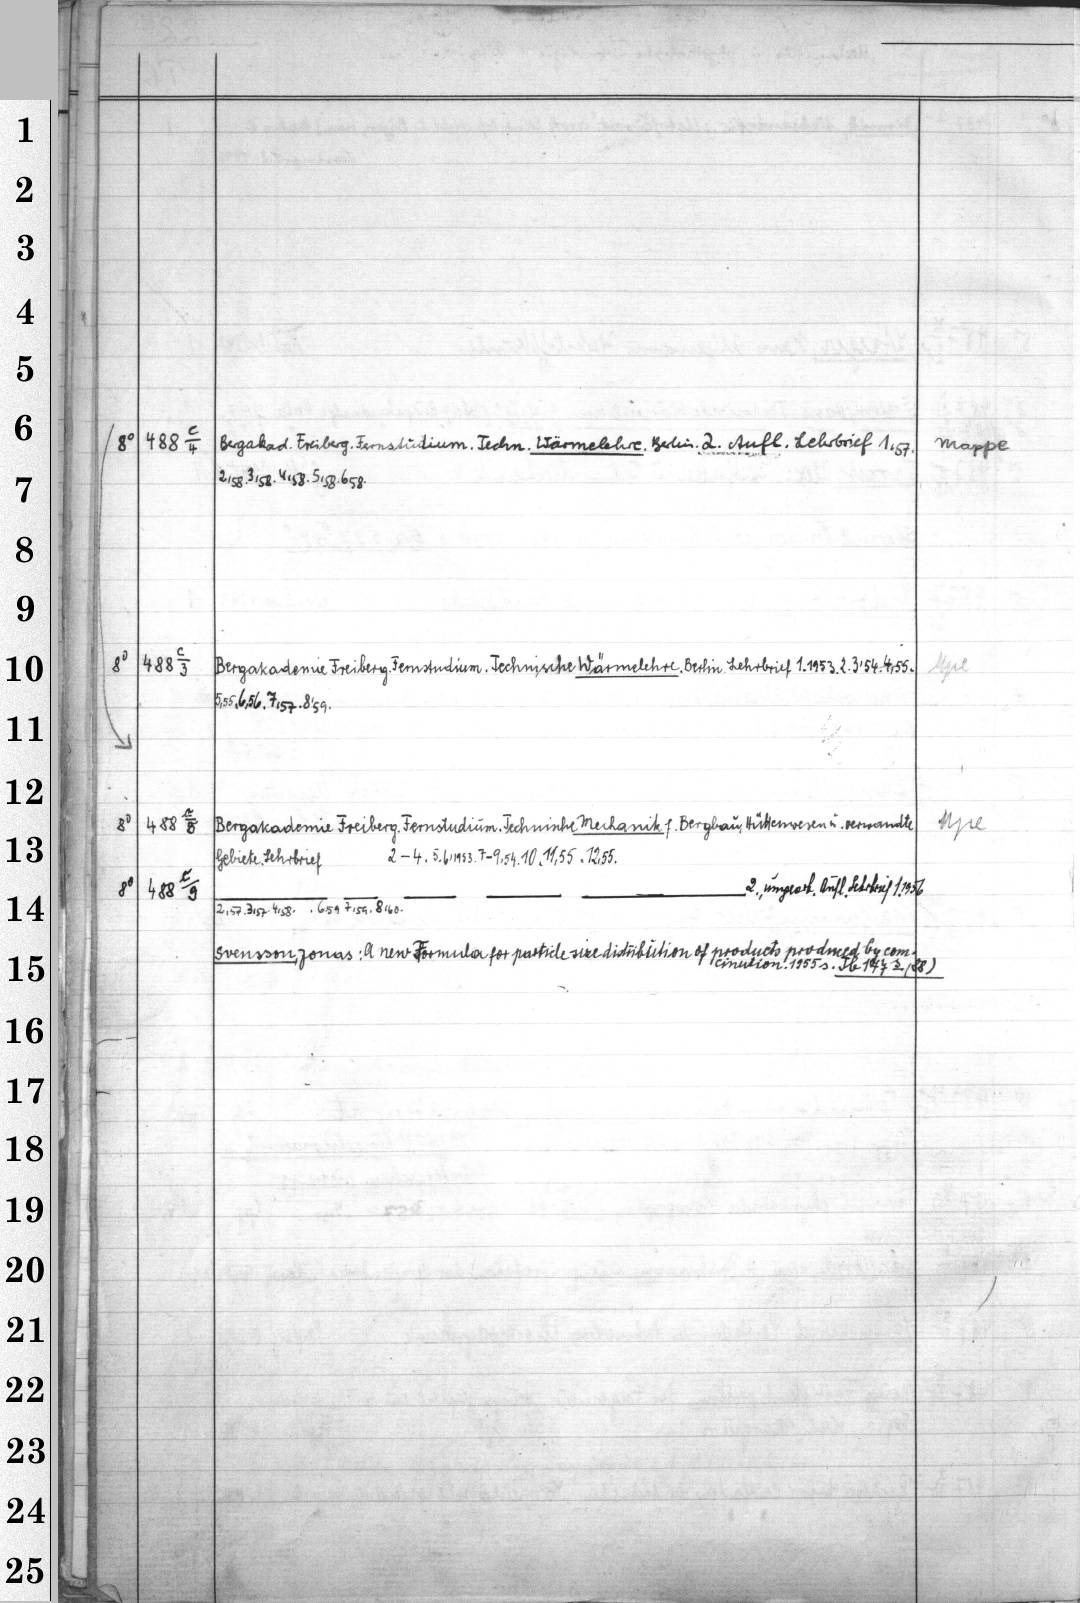 1
2
3
4
5
6
8° 488 c/4 Bergakad. Freiberg. Fernstudium. Techn. Wärmelehre. Berlin. 2. Aufl. Lehrbrief 1,57. Mappe
7
2,58. 3,58. 4,58. 5,58. 6,58.
8
9
10
8° 488 c/3 Bergakademie Freiberg. Fernstudium. Technische Wärmelehre. Berlin. Lehrbrief 1.1953. 2. 3'54. 4,55. Mpe
5,55. 6,56. 7,57. 8'59.
11
12
8° 488 c/8 Bergakademie Freiberg. Fernstudium. Technische Mechanik f. Bergbau, Hüttenwesen u. verwandte Mpe
13
Gebiete. Lehrbrief 2-4. 5. 6,1953. 7-9,54. 10. 11,55. 12,55.
8° 488 c/9 2., umgearb. Aufl. Lehrbrief 1.1956
14
2,57. 3,57. 4,58. 6,59. 7,59. 8,60.
Svensson, Jonas: A new Formula for particle size distribution of products produced by com-
15
cinution. 1955 s.
16
17
18
19
20
21
22
23
24
25